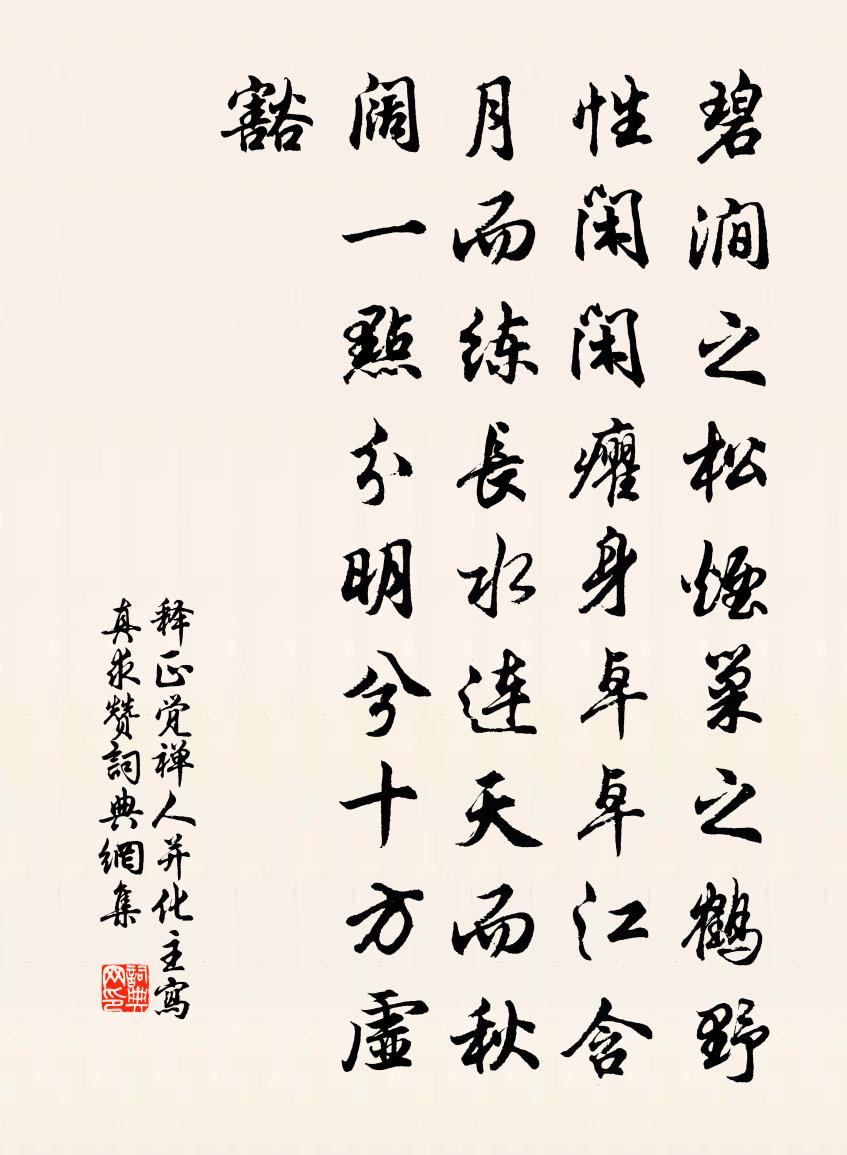 碧涧之松煙巢之鹤野
性闲闲癯身卓卓江含
月而练長水連天而秋
阔一點分明兮十方虛
豁
释正觉禅人并化主寫
真求赞詞典網集
詞典
网印